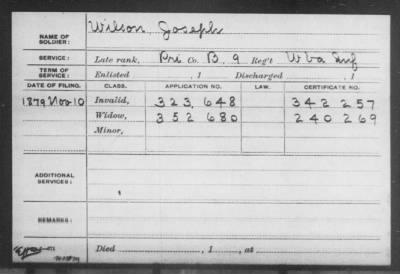 Wilson, Joseph
NAME OF SOLDIER:
SERVICE: Late rank, Pri Co. B, 9 Reg't W Va Inf
TERM OF SERVICE: Enlisted , 1 Discharged , 1
DATE OF FILING. CLASS. APPLICATION NO. LAW. CERTIFICATE NO.
1879 Nov 10 Invalid, 323,648 342 257
Widow, 352 680 240 269
Minor,
ADDITIONAL SERVICES:
REMARKS:
Died , 1 , at